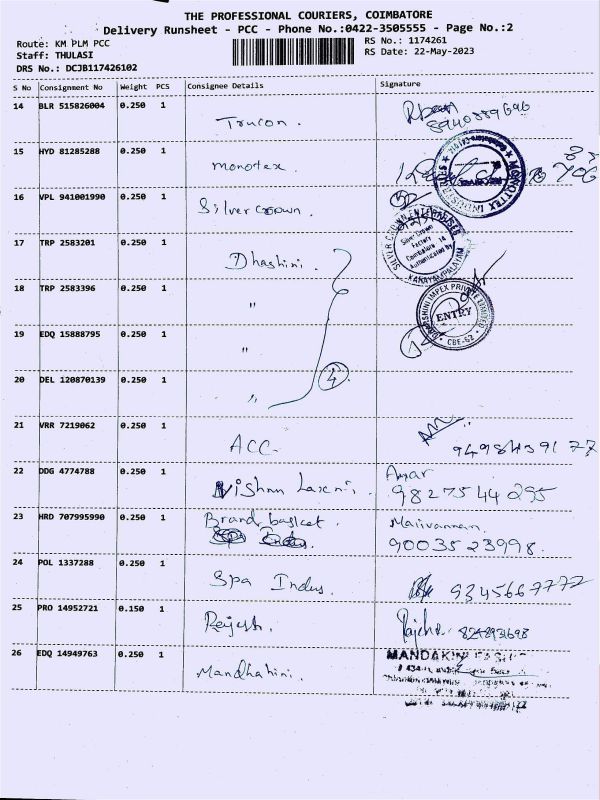 THE PROFESSIONAL COURIERS, COIMBATORE
Delivery Runsheet - PCC - Phone No.:0422-3505555 - Page No.:2
Route: KM PLM PCC
Staff: THULASI
DRS No.: DCJB117426102
RS No.: 1174261
RS Date: 22-May-2023
S No Consignment No Weight PCS Consignee Details Signature
14 BLR 515826004 0.250 1 Trucon.
15 HYD 81285288 0.250 1 monotex
MONOTEX INDUSTRIES
16 VPL 941001990 0.250 1 Silver crown.
SILVER CROWN ENTERPRISES
Silver Crown
Factory
Coimbatore
Authenticated by
17 TRP 2583201 0.250 1 Dhashini.
18 TRP 2583396 0.250 1 "
IMPEX PRIVATE LIMITED
ENTRY
CBE-62
19 EDQ 15888795 0.250 1 "
20 DEL 120870139 0.250 1 " 4
21 VRR 7219062 0.250 1 ACC.
22 DDG 4774788 0.250 1 Vishnu Laxmi. Amar
9827544095
23 HRD 707995990 0.250 1 Brand basket. Marivannan
9003523998.
24 POL 1337288 0.250 1 Spa Indus. 9345667777
25 PRO 14952721 0.150 1 Rejesh.
26 EDQ 14949763 0.250 1 Mandhahini.
MANDAKINI